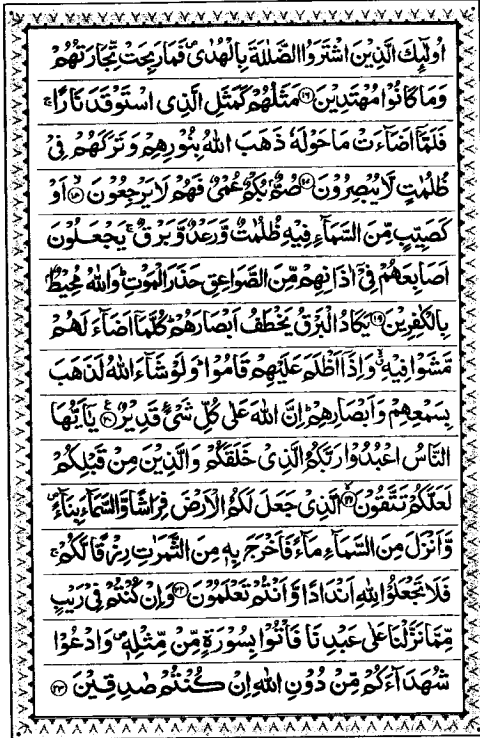 اُولٰٓئِكَ الَّذِيْنَ اشْتَرَوُا الضَّلٰلَةَ بِالْهُدٰى فَمَا رَبِحَتْ تِّجَارَتُهُمْ
وَمَا كَانُوْا مُهْتَدِيْنَ ۝۱۶ مَثَلُهُمْ كَمَثَلِ الَّذِى اسْتَوْقَدَ نَارًا ۚ
فَلَمَّآ اَضَآءَتْ مَا حَوْلَهٗ ذَهَبَ اللّٰهُ بِنُوْرِهِمْ وَتَرَكَهُمْ فِىْ
ظُلُمٰتٍ لَّا يُبْصِرُوْنَ ۝۱۷ صُمٌّۢ بُكْمٌ عُمْىٌ فَهُمْ لَا يَرْجِعُوْنَ ۝۱۸ اَوْ
كَصَيِّبٍ مِّنَ السَّمَآءِ فِيْهِ ظُلُمٰتٌ وَّرَعْدٌ وَّبَرْقٌ ۚ يَجْعَلُوْنَ
اَصَابِعَهُمْ فِىْٓ اٰذَانِهِمْ مِّنَ الصَّوَاعِقِ حَذَرَ الْمَوْتِ ؕ وَاللّٰهُ مُحِيْطٌۢ
بِالْكٰفِرِيْنَ ۝۱۹ يَكَادُ الْبَرْقُ يَخْطَفُ اَبْصَارَهُمْ ؕ كُلَّمَآ اَضَآءَ لَهُمْ
مَّشَوْا فِيْهِ ۙ وَاِذَآ اَظْلَمَ عَلَيْهِمْ قَامُوْا ؕ وَلَوْ شَآءَ اللّٰهُ لَذَهَبَ
بِسَمْعِهِمْ وَاَبْصَارِهِمْ ؕ اِنَّ اللّٰهَ عَلٰى كُلِّ شَىْءٍ قَدِيْرٌ ۝۲۰ يٰٓاَيُّهَا
النَّاسُ اعْبُدُوْا رَبَّكُمُ الَّذِىْ خَلَقَكُمْ وَالَّذِيْنَ مِنْ قَبْلِكُمْ
لَعَلَّكُمْ تَتَّقُوْنَ ۝۲۱ الَّذِىْ جَعَلَ لَكُمُ الْاَرْضَ فِرَاشًا وَّالسَّمَآءَ بِنَآءً ۪
وَّاَنْزَلَ مِنَ السَّمَآءِ مَآءً فَاَخْرَجَ بِهٖ مِنَ الثَّمَرٰتِ رِزْقًا لَّكُمْ ۚ
فَلَا تَجْعَلُوْا لِلّٰهِ اَنْدَادًا وَّاَنْتُمْ تَعْلَمُوْنَ ۝۲۲ وَاِنْ كُنْتُمْ فِىْ رَيْبٍ
مِّمَّا نَزَّلْنَا عَلٰى عَبْدِنَا فَاْتُوْا بِسُوْرَةٍ مِّنْ مِّثْلِهٖ ۪ وَادْعُوْا
شُهَدَآءَكُمْ مِّنْ دُوْنِ اللّٰهِ اِنْ كُنْتُمْ صٰدِقِيْنَ ۝۲۳